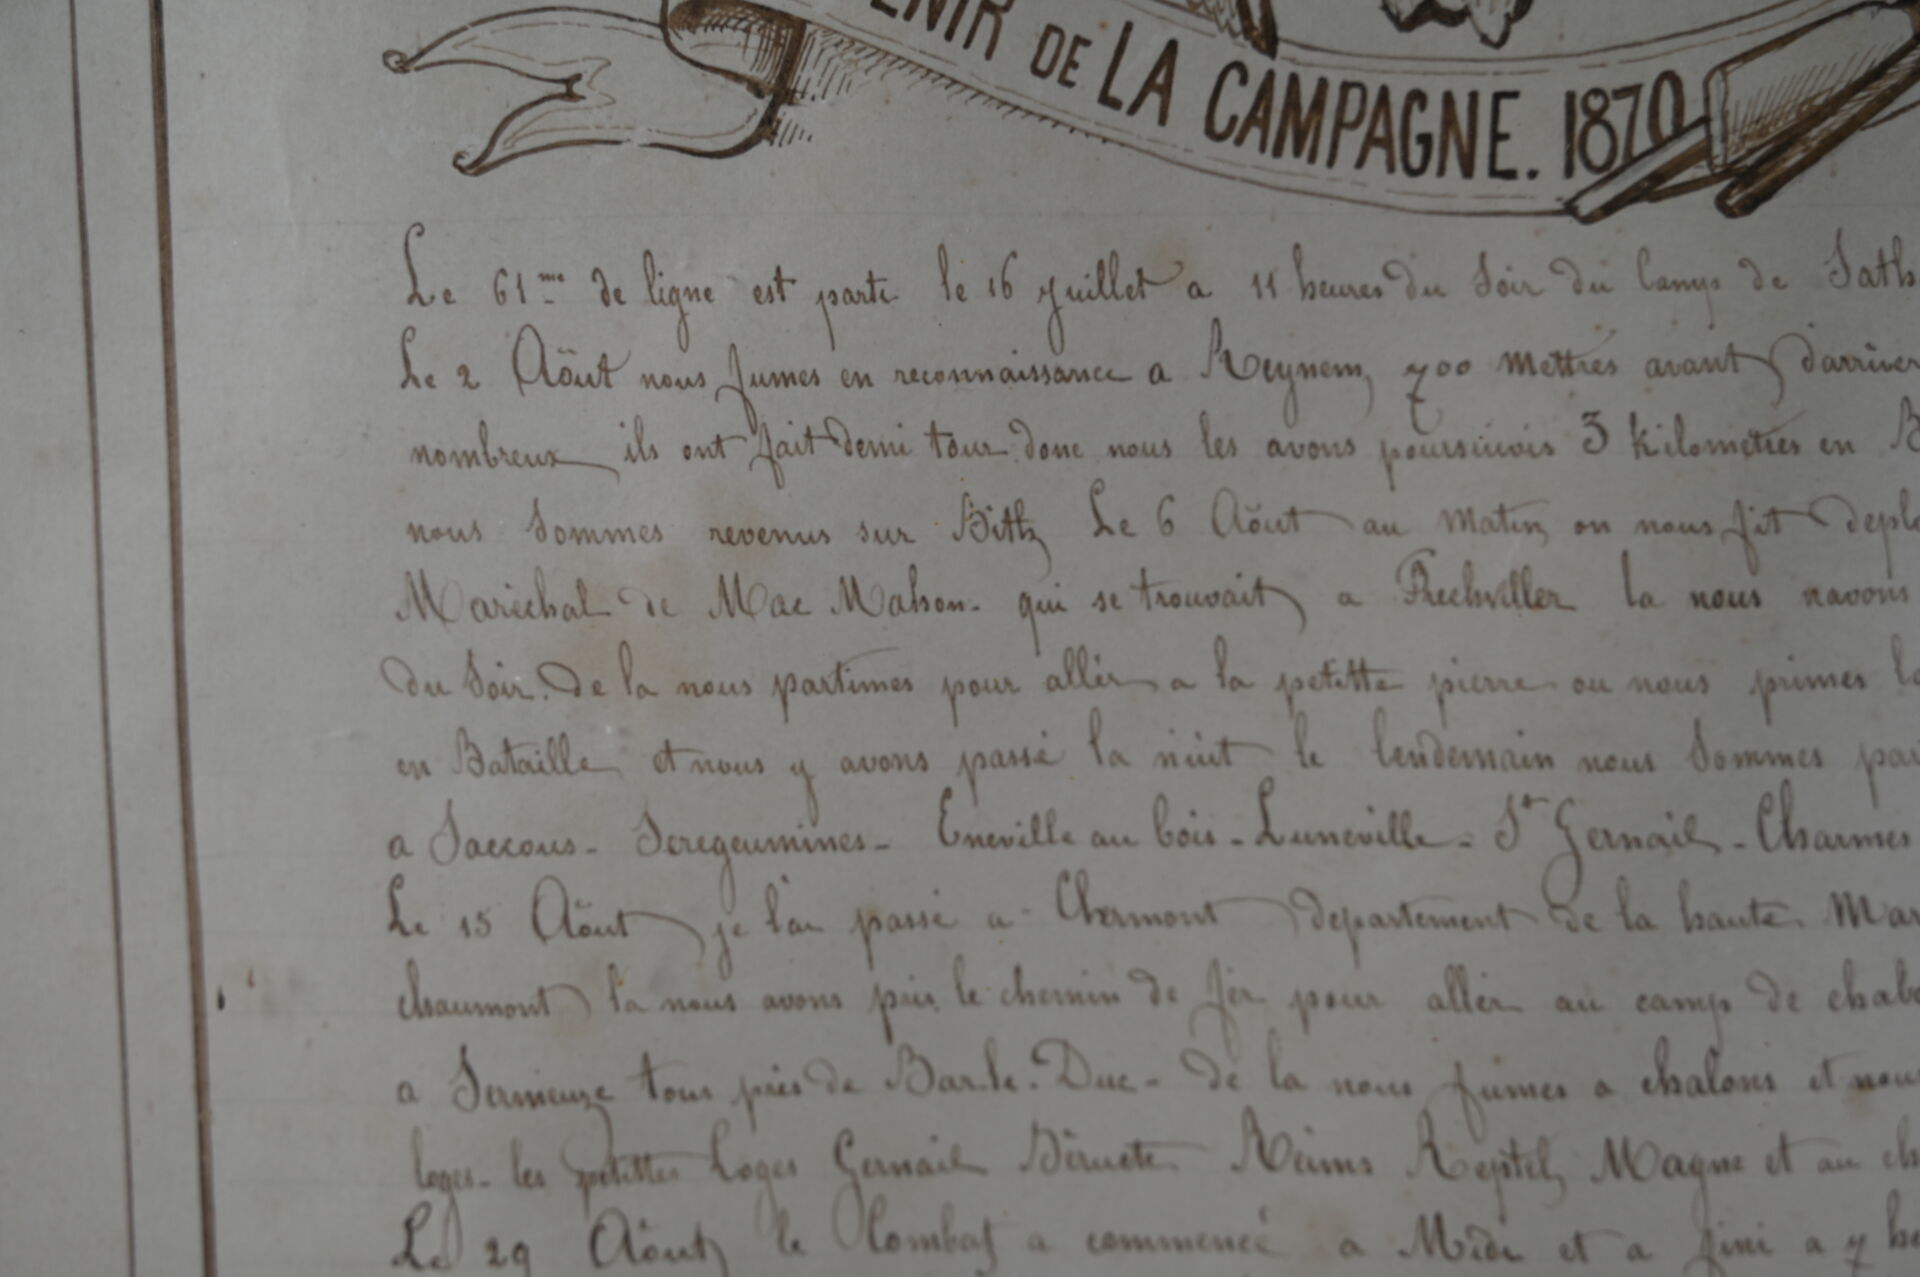 ENIR DE LA CAMPAGNE. 1870
Le 61me de ligne est parti le 16 Juillet a 11 heures du Soir du Camp de Sath
Le 2 Aöut nous fumes en reconnaissance a Reynem, 700 mettres avant d'arriver
nombreux ils ont fait demi tour donc nous les avons poursuivis 3 kilometres en B
nous Sommes revenus sur Bith Le 6 Aöut au matin on nous fit deplo
Marechal de Mac Mahon. qui se trouvait a la nous navons
du Soir. de la nous partimes pour aller a la petitte pierre ou nous primes la
en Bataille et nous y avons passé la nuit le lendemain nous Sommes par
a Saccous - Seregeumines - Eneville au bois - Luneville - St Gernail - Charmes
Le 15 Aöut je l'ai passé a Chermont departement de la haute Mar
chaumont la nous avons pris le chemin de fer pour aller au camp de chalo
a Sermeuze tous près de Bar-le-Duc - de la nous fumes a chalons et nous
loges - les petittes Loges Gernail Béruete Reims Reptel, Magne et au ch
Le 29 Aöut le Combat a commencé a Midi et a fini a 7 he